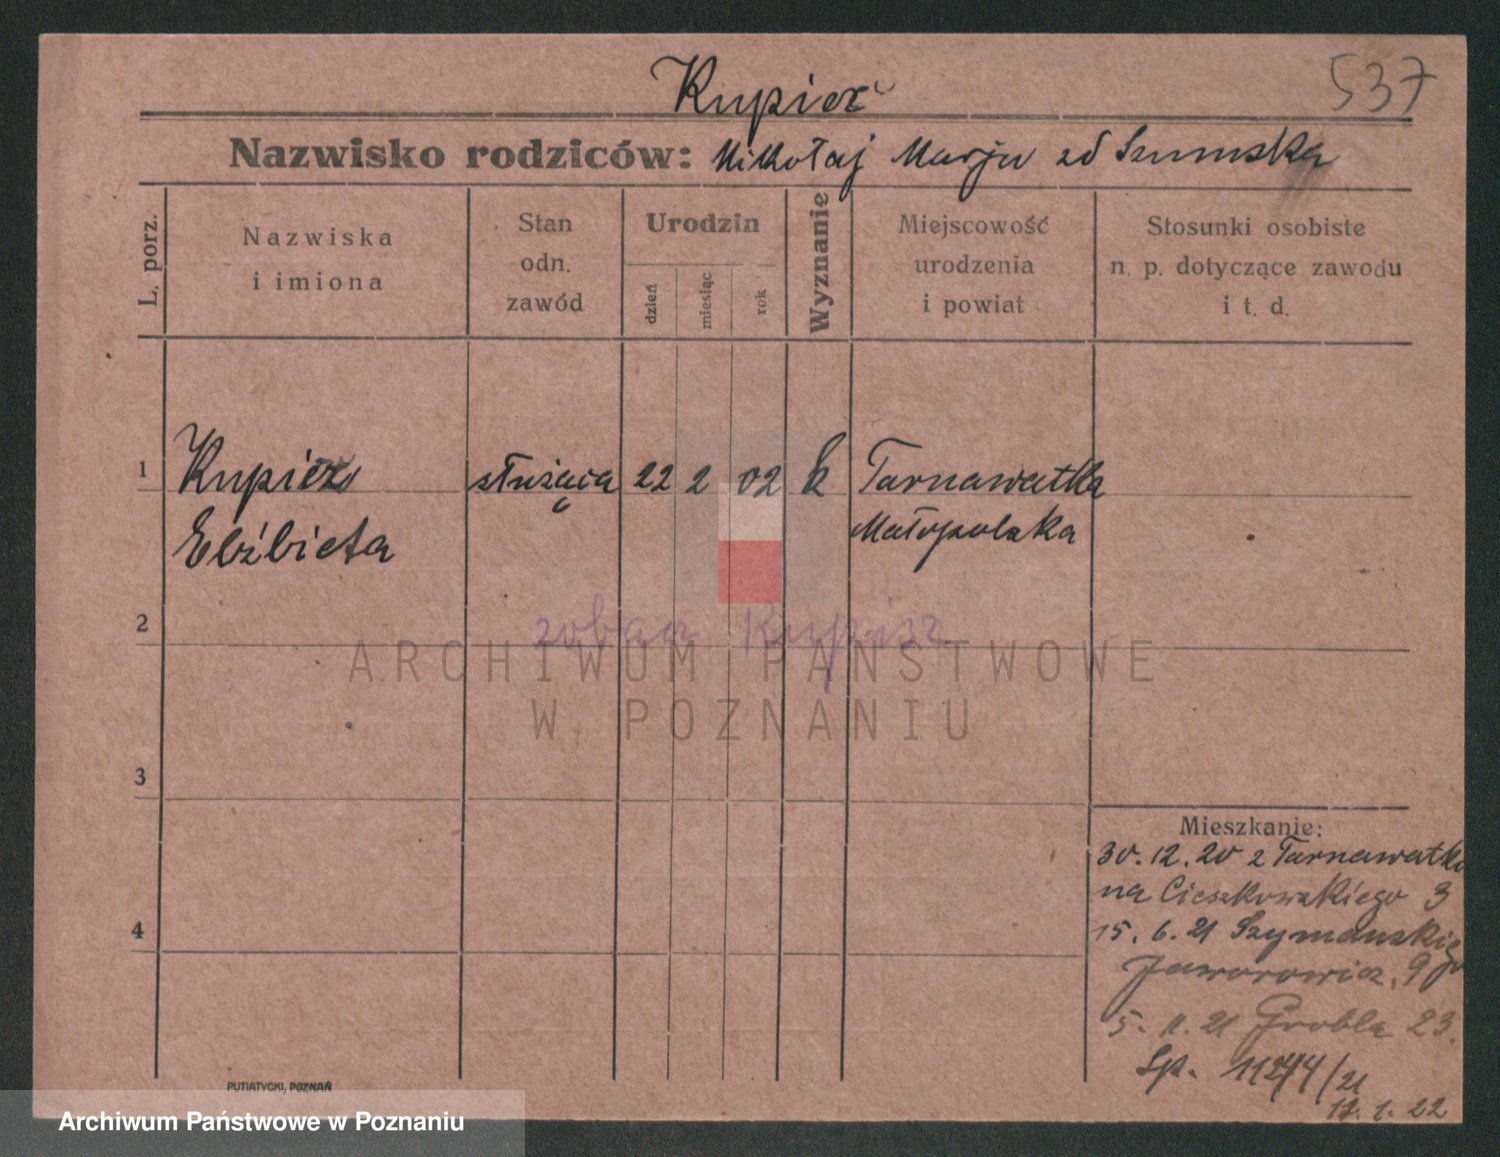 Kupiec
537
Nazwisko rodziców: Mikołaj Marja zd Szumska
L. porz.
Nazwiska
i imiona
Stan
odn.
zawód
Urodzin
dzień
miesiąc
rok
Wyznanie
Miejscowość
urodzenia
i powiat
Stosunki osobiste
n. p. dotyczące zawodu
i t. d.
1
Kupiec
Elżbieta
służąca
22 2 02 k
Tarnawatka
Małopolska
2
zobacz Kupisz
ARCHIWUM PAŃSTWOWE
W POZNANIU
3
4
Mieszkanie:
30.12.20 z Tarnawatki
na Cieszkowskiego 3
15. 6. 21 Szymańskiego
Jaworowicz, 9
5. 11. 21 Grobla 23.
Sp. /21
12. 1. 22
PUTIATYCKI, POZNAŃ
Archiwum Państwowe w Poznaniu